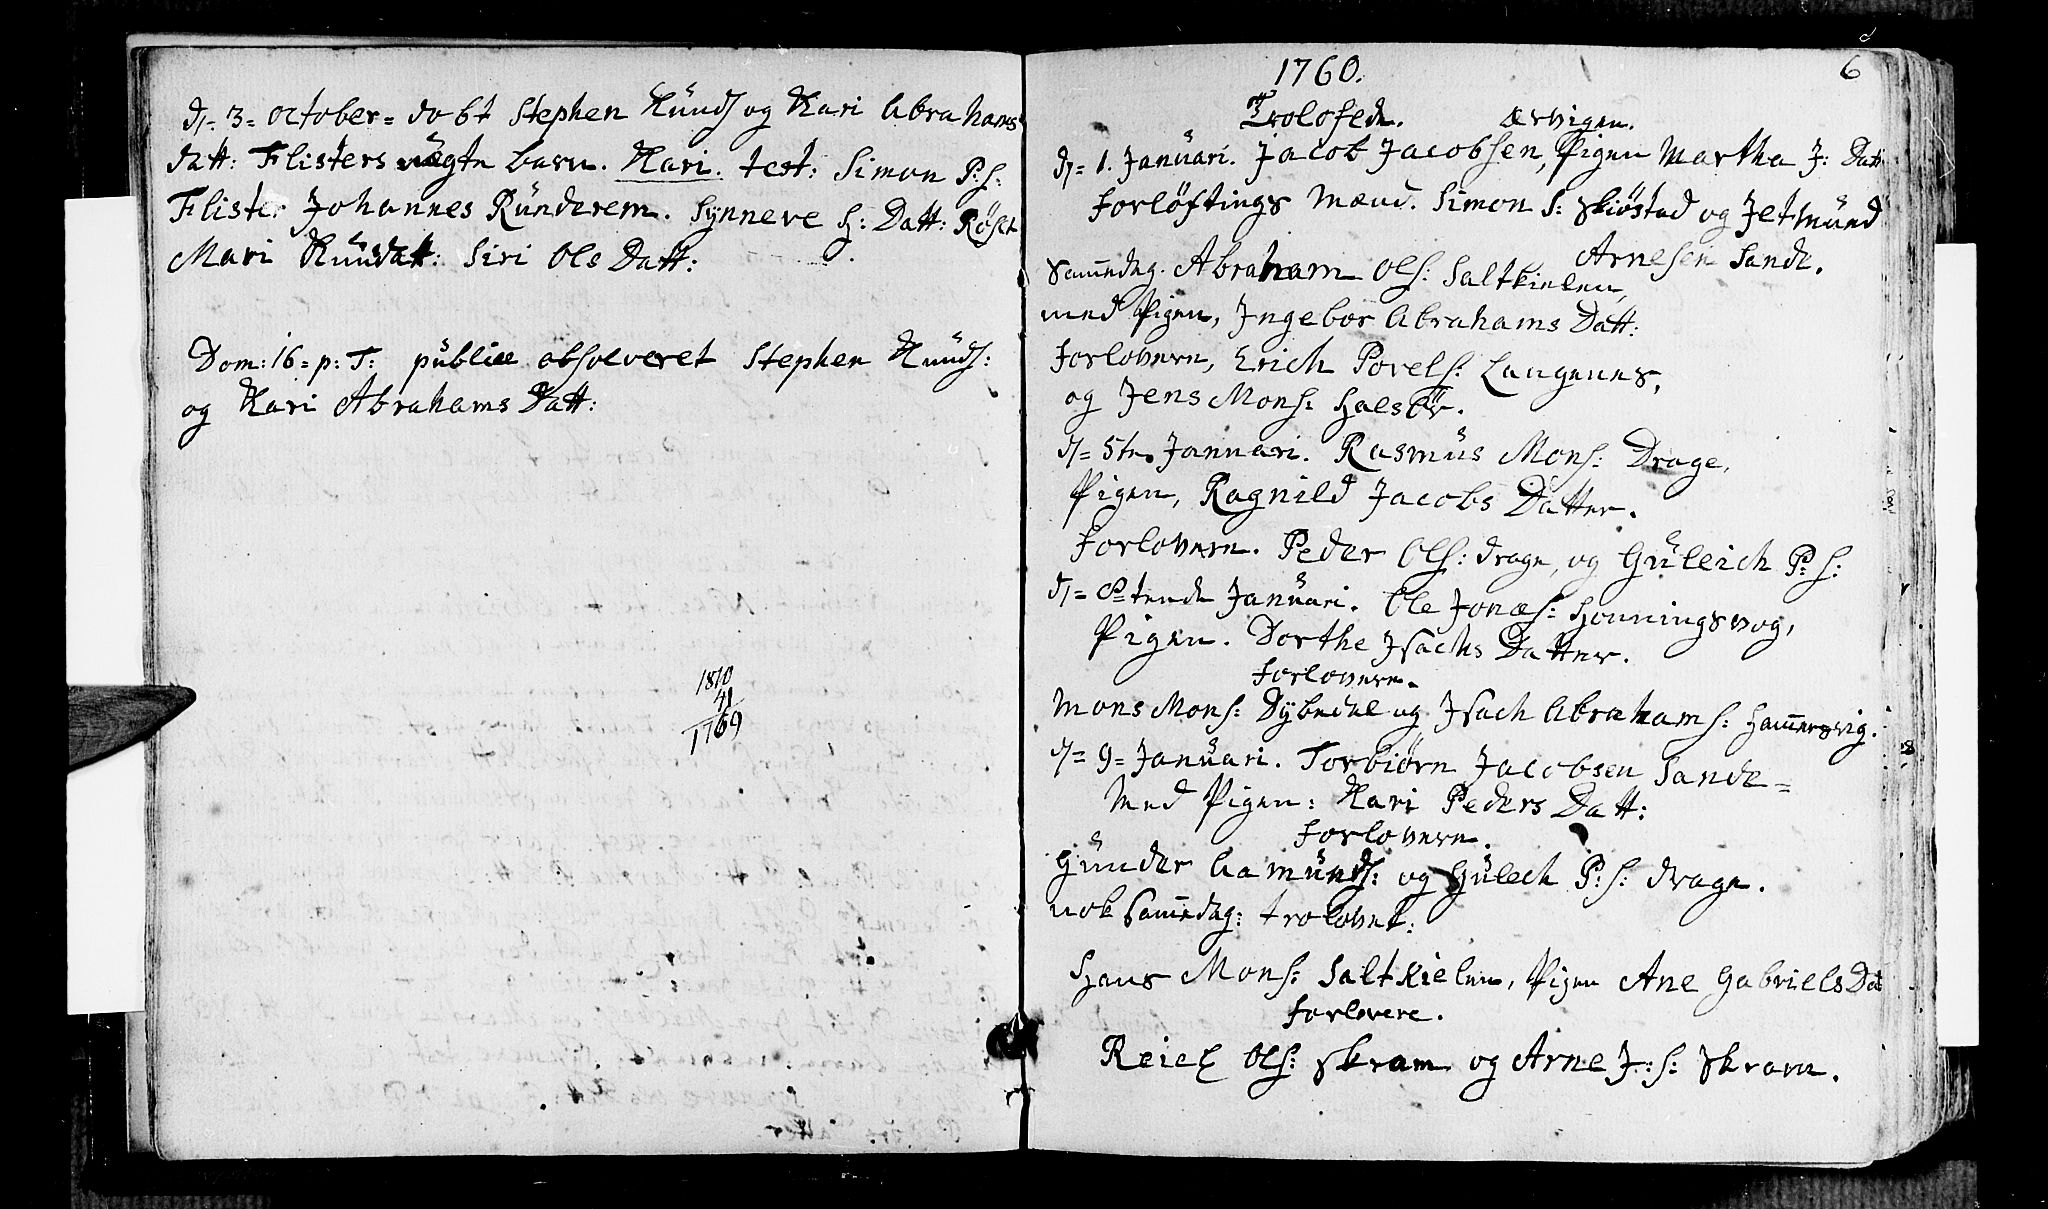 d. 3. October. dobt Stephen Knuds og Kari Abrahams
datt: Flisters uægte barn. Kari. test: Simon P:s:
Flister Johannes Runderem. Synneve H: Datt: Röset
Mari Knudatt: Siri Ols Datt:
Dom: 16 p: T: publice absolveret Stephen Knuds:
og Kari Abrahams Datt:
1810
41
1769
6
1760.
Trolofede. Ervigen.
d. 1. Januari. Jacob Jacobsen, Pigen Martha J: Datt
Forlöftings Mænd. Simon S: Skiöstad og Jetmund
Arnesen Sande.
Samedag. Abraham Ols: Saltkielen,
med Pigen, Ingebor Abrahams Datt:
Forlovere, Erich Povels: Langenes,
og Jens Mons: Halsör.
d. 5te Januari. Rasmus Mons: Drage,
Pigen, Ragnild Jacobs Datter.
Forlovere. Peder Ols: Drage, og Guleich P:s:
d. 8tende Januari. Ole Jonæs: Honningsvog,
Pigen. Dorthe Isachs Datter.
Forlovere.
Mons Mons: Dybedal og Isach Abrahams: Hamersvig.
d. 9. Januari. Torbiörn Jacobsen Sande
Med Pigen: Kari Peders Datt:
Forlovere.
Gunder Aamunds: og Gulech P:s: Drage.
nok Samedag: trolovet:
Hans Mons: Saltkielen, Pigen Ane Gabriels Dat
Forlovere.
Ols: Skram og Arne J:s: Skram.